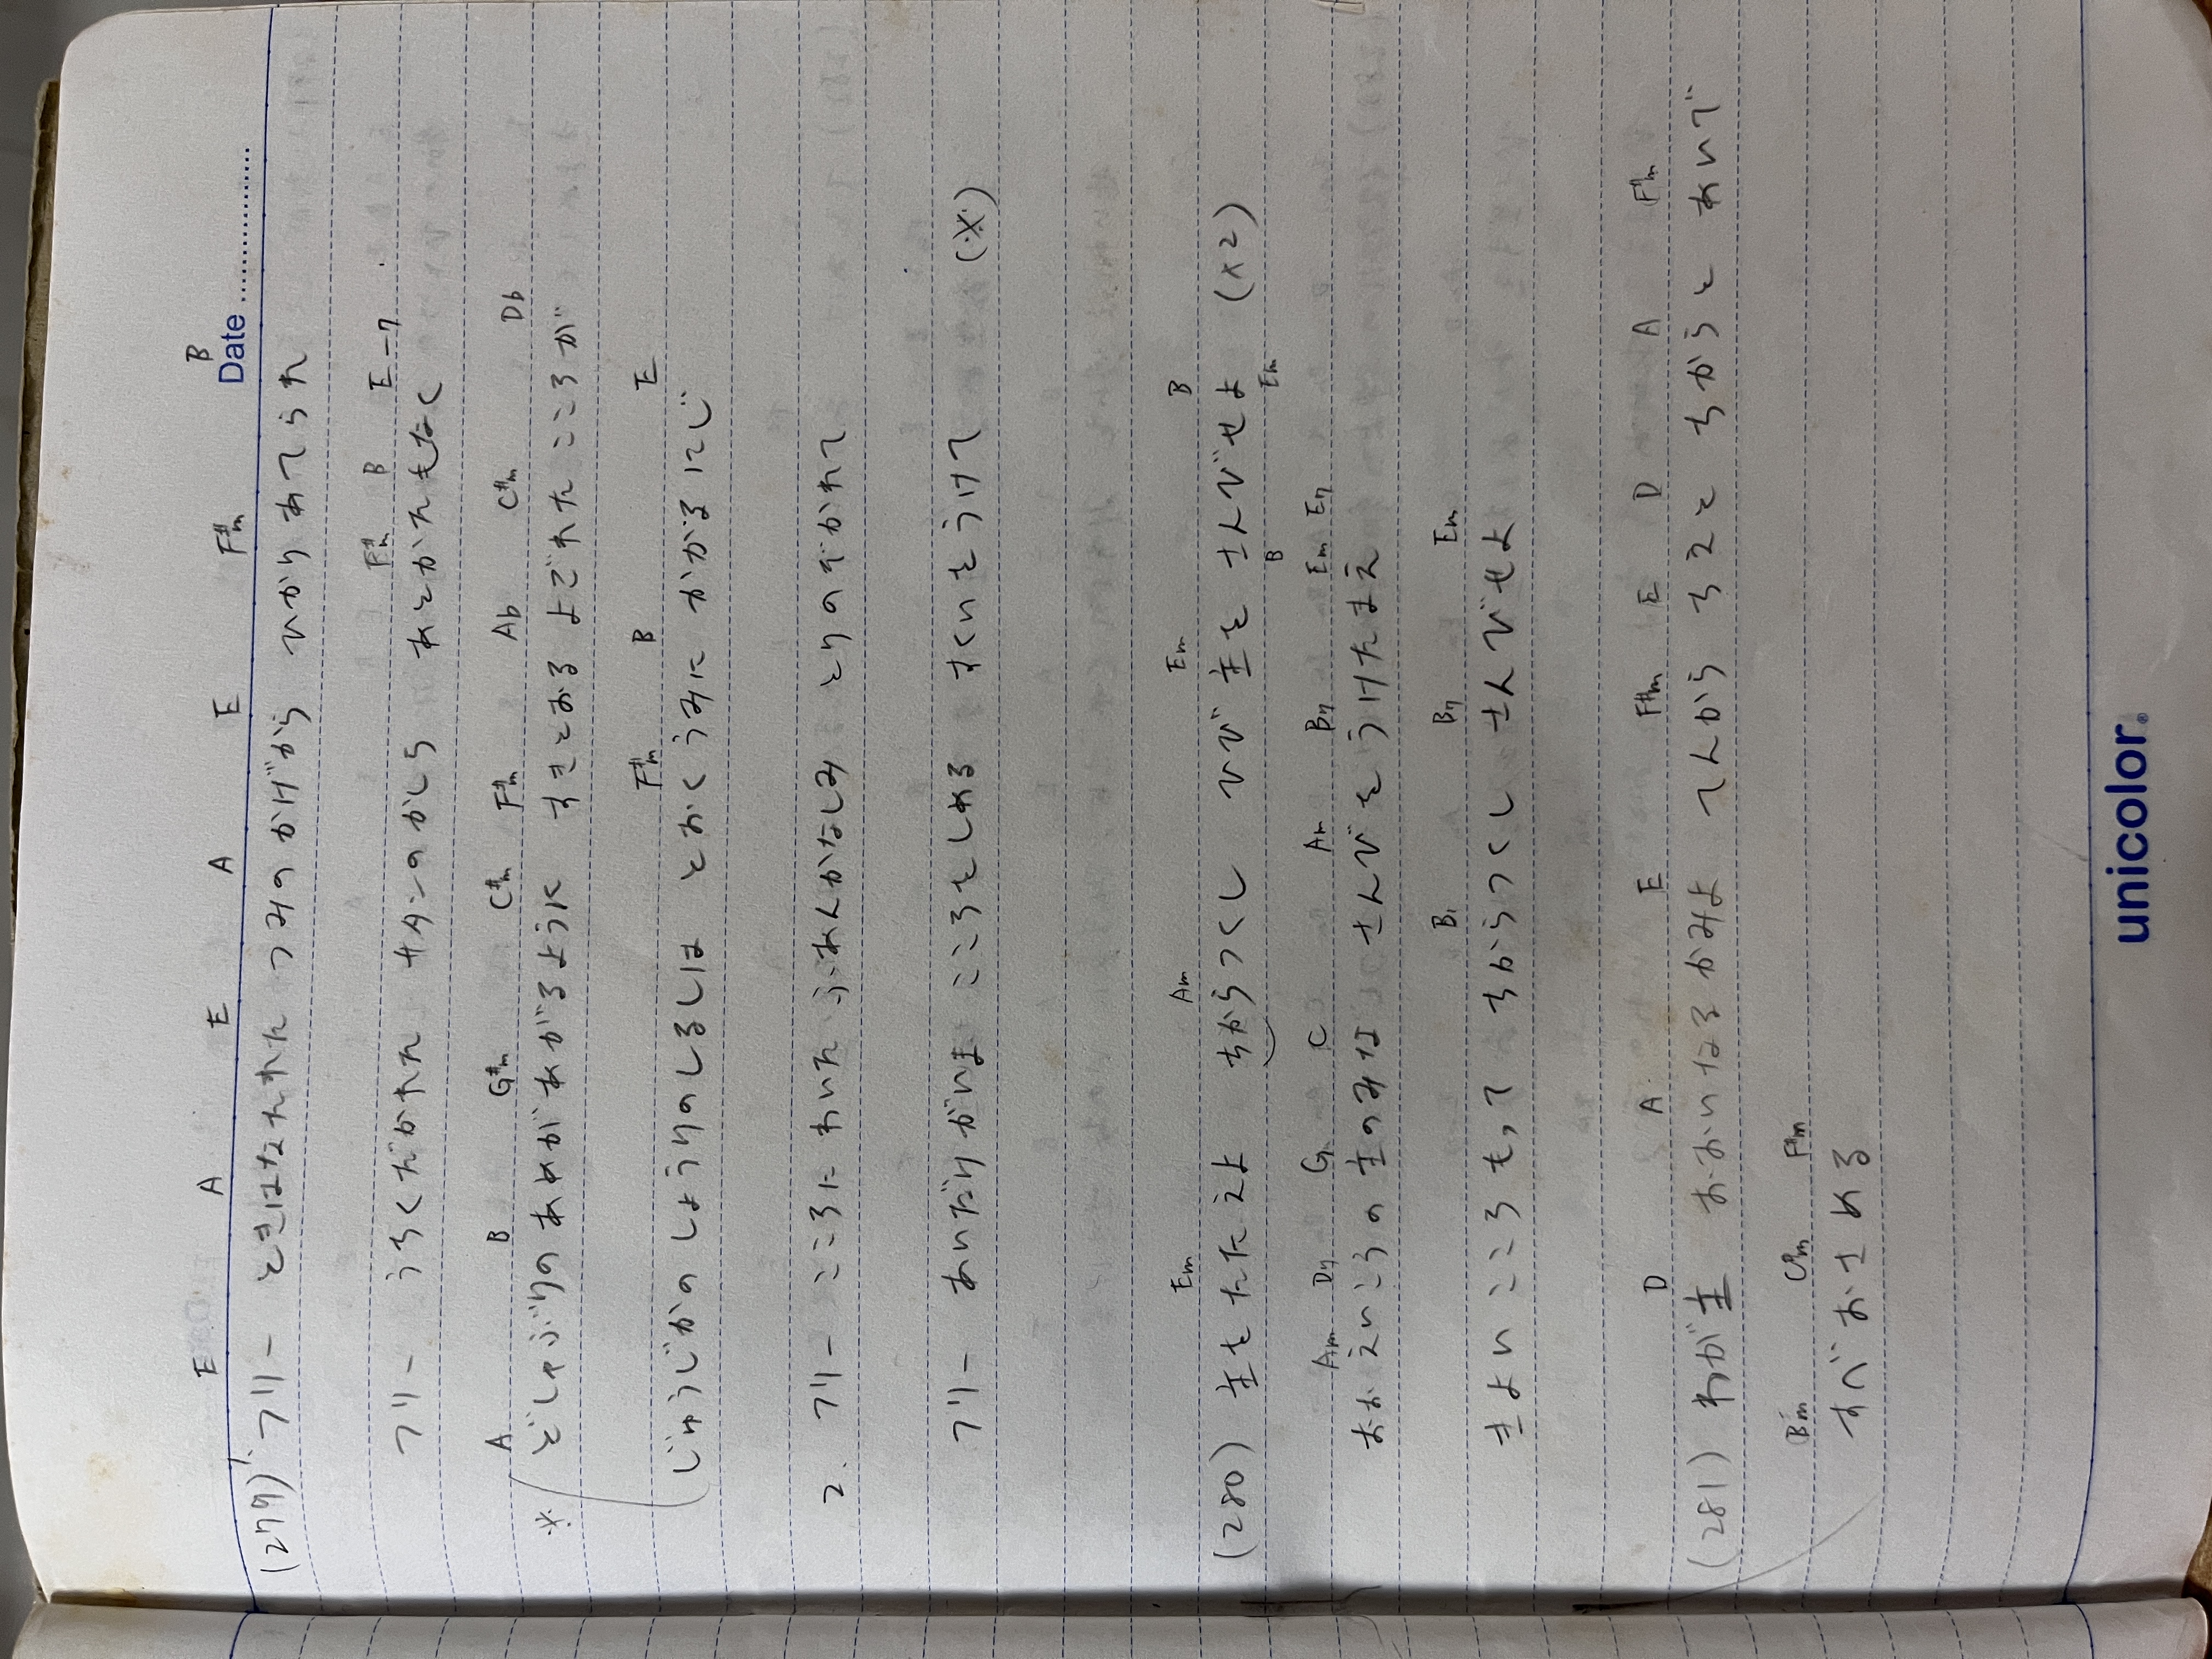 Date B
E A E A E F#m
(279) 1. フリー ときはなたれた つみのかげから ひかりあてられ
F#m B E-7
フリー うちくだかれた サタンのかしら あとかたもなく
A B G#m C#m F#m Ab C#m Db
※ どしゃぶりのあめがあがるように すきとおる よごれたこころが
F#m B E
じゅうじかのしょうりのしるしは とおくうみに かかるにじ
2. フリー こころにわいた ふあんかなしみ とりのぞかれて
フリー あいだけがいま こころをしめる すくいをうけて (※)
Em Am Em B
(280) 主をたたえよ ちからつくし ひび主を さんびせよ (×2)
B Em
Am D7 G C Am B7 Em E7
おお えいこうの主のみな さんびをうけたまえ
B7 B7 Em
きよいこころもって ちからつくし さんびせよ
D A E F#m E D A F#m
(281) わが主 おおいなるかみよ てんから ちえと ちからと あいで
Bm C#m F#m
すべおさめる
unicolor.